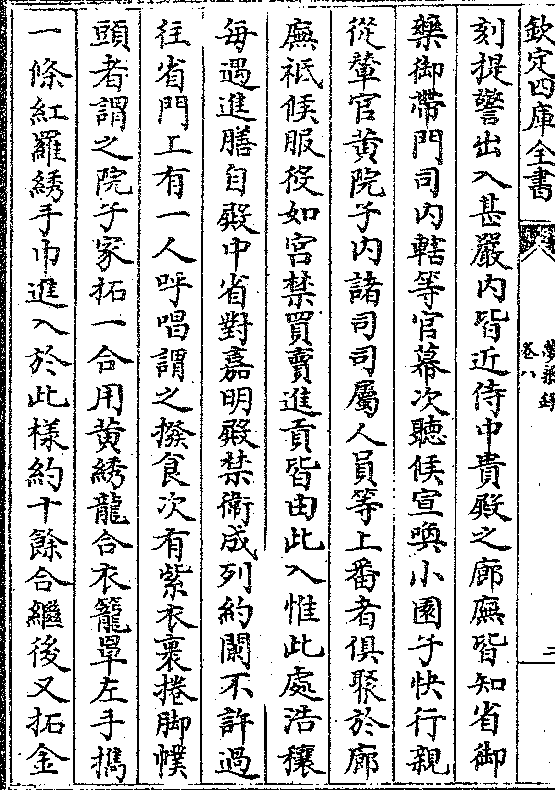 欽定四庫全書
夢粱錄
卷八
二
刻提警出入甚嚴内皆近侍中貴殿之廊廡皆知省御
藥御帶門司内轄等官幕次聽候宣喚小園子快行親
從輦官黄院子内諸司司屬人員等上番者俱聚於廊
廡祗候服役如宫禁買賣進貢皆由此入惟此處浩穰
每遇進膳自殿中省對嘉明殿禁衛成列約闌不許過
往省門上有一人呼唱謂之撥食次有紫衣裹捲脚幞
頭者謂之院子家拓一合用黄綉龍合衣籠罩左手攜
一條紅羅綉手巾進入於此様約十餘合繼後又拓金